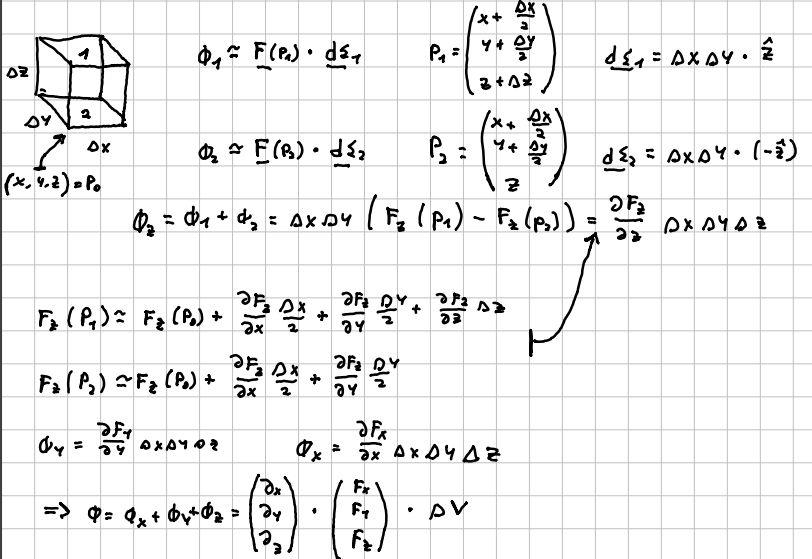 1
Δz
Δy
2
Δx
(x, y, z) = P₀
ϕ₁ ≃ F(P₁) · dΣ₁    P₁ = (x + Δx/2, y + Δy/2, z + Δz)    dΣ₁ = Δx Δy · ẑ
ϕ₂ ≃ F(P₂) · dΣ₂    P₂ = (x + Δx/2, y + Δy/2, z)    dΣ₂ = Δx Δy · (-ẑ)
ϕ_z = ϕ₁ + ϕ₂ = Δx Δy (F_z(P₁) - F_z(P₂)) = ∂F_z/∂z Δx Δy Δz
F_z(P₁) ≃ F_z(P₀) + ∂F_z/∂x Δx/2 + ∂F_z/∂y Δy/2 + ∂F_z/∂z Δz
F_z(P₂) ≃ F_z(P₀) + ∂F_z/∂x Δx/2 + ∂F_z/∂y Δy/2
ϕ_y = ∂F_y/∂y Δx Δy Δz    ϕ_x = ∂F_x/∂x Δx Δy Δz
=> ϕ = ϕ_x + ϕ_y + ϕ_z = (∂x, ∂y, ∂z) · (F_x, F_y, F_z) · ΔV